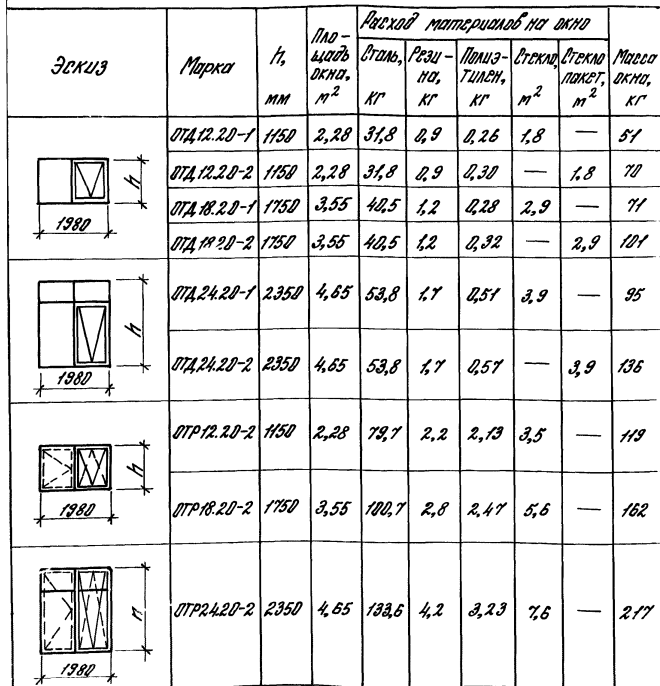 Эскиз Марка h, мм Пло-щадь окна, м² Расход материалов на окно Масса окна, кг
Сталь, кг Рези-на, кг Полиэ-тилен, кг Стекло, м² Стекло пакет, м²
ОТД12.20-1 1150 2,28 31,8 0,9 0,26 1,8 — 51
ОТД12.20-2 1150 2,28 31,8 0,9 0,30 — 1,8 70
ОТД18.20-1 1750 3,55 40,5 1,2 0,28 2,9 — 71
ОТД18.20-2 1750 3,55 40,5 1,2 0,32 — 2,9 101
h
1980
ОТД24.20-1 2350 4,65 53,8 1,7 0,51 3,9 — 95
ОТД24.20-2 2350 4,65 53,8 1,7 0,57 — 3,9 136
h
1980
ОТР12.20-2 1150 2,28 79,7 2,2 2,13 3,5 — 119
ОТР18.20-2 1750 3,55 100,7 2,8 2,47 5,6 — 162
h
1980
ОТР24.20-2 2350 4,65 133,6 4,2 3,23 7,6 — 217
h
1980